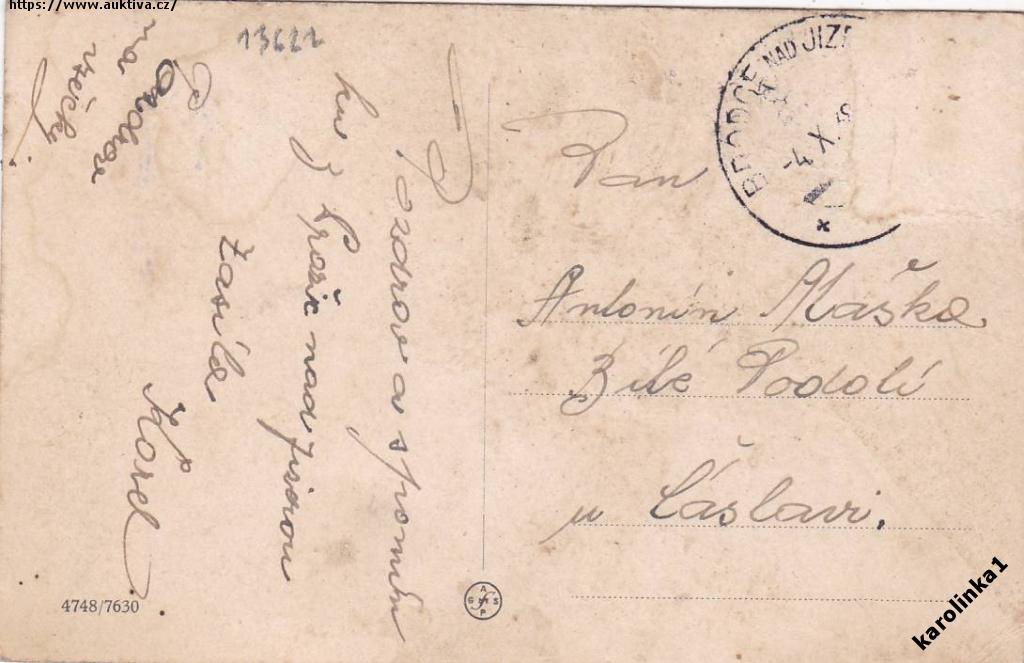 https://www.auktiva.cz/
13622
Pozdrav a spomín
ku z
nad Jizerou
zasílá
Karel
na
všecky
BRODCE NAD JIZ
-4. X. 48
*
Pan
Antonín Maška
Bílé Podolí
u Čáslavi.
4748/7630
karolinka1